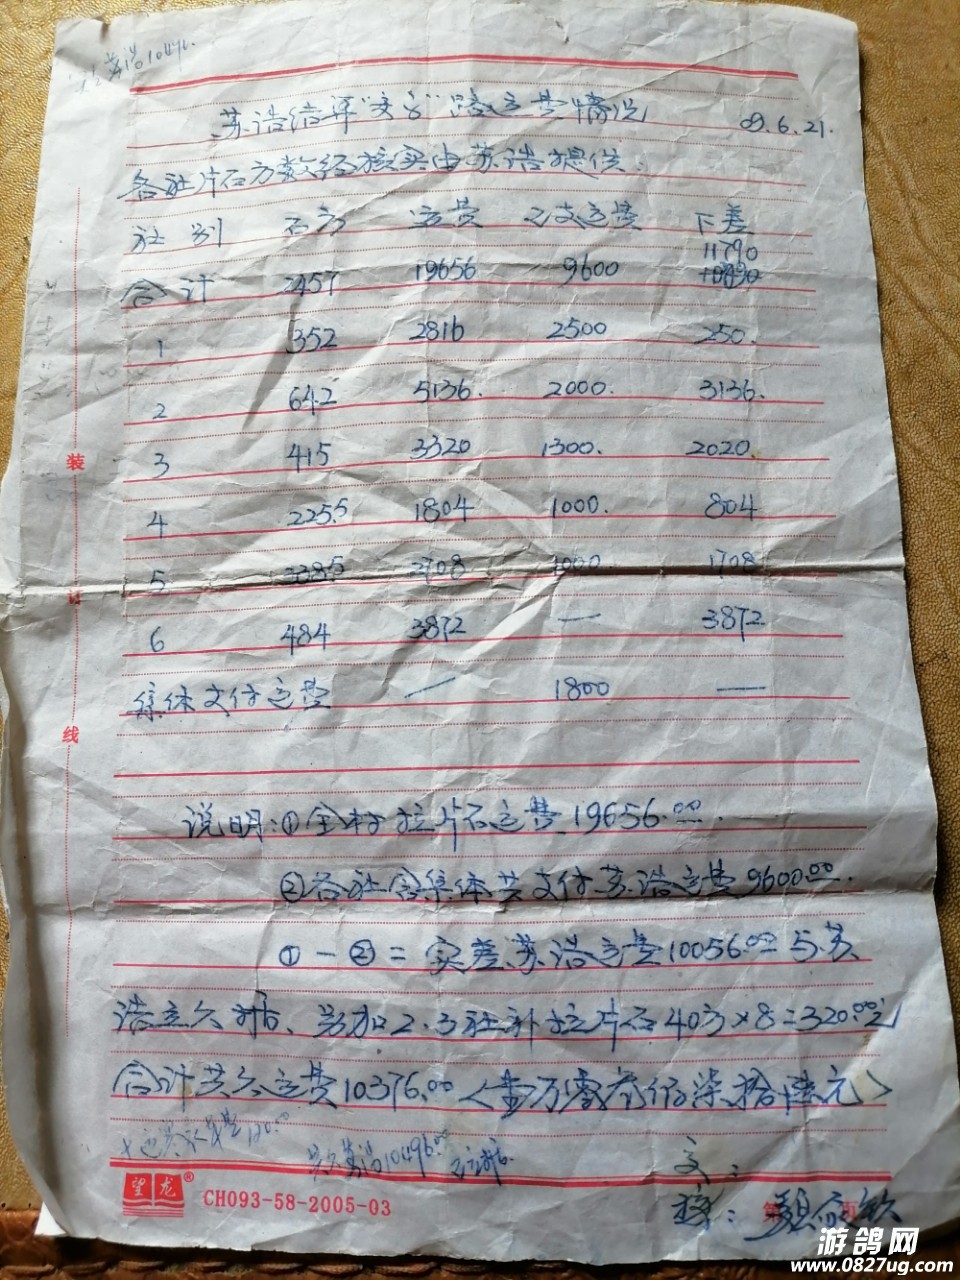 苏浩10496.
苏浩结算"交 "路运费情况 09.6.21.
各社片石方数经核实由苏浩提供.
社别 石方 运费 已支运费 下差
11790
合计 2457 19656 9600
1 352 2816 2500 250.
2 642 5136. 2000. 3136.
3 415 3320 1300. 2020.
4 225.5 1804 1000. 804
5 338.5 2708 1000 1708
6 484 3872 — 3872
集体支付运费 — 1800 —
说明:①全村拉片石运费19656.00.
②各社含集体共支付苏浩运费9600.00.
①-②=实差苏浩运费10056.00与苏
浩立欠据、另加2.3社补拉片石40方×8=320.00元
合计共欠运费10376.00<壹万零叁佰柒拾陆元>
120.00
苏浩10496.00
交:
接:
装
订
线
望龙®
CH093-58-2005-03
第 页
游鸽网
www.0827ug.com